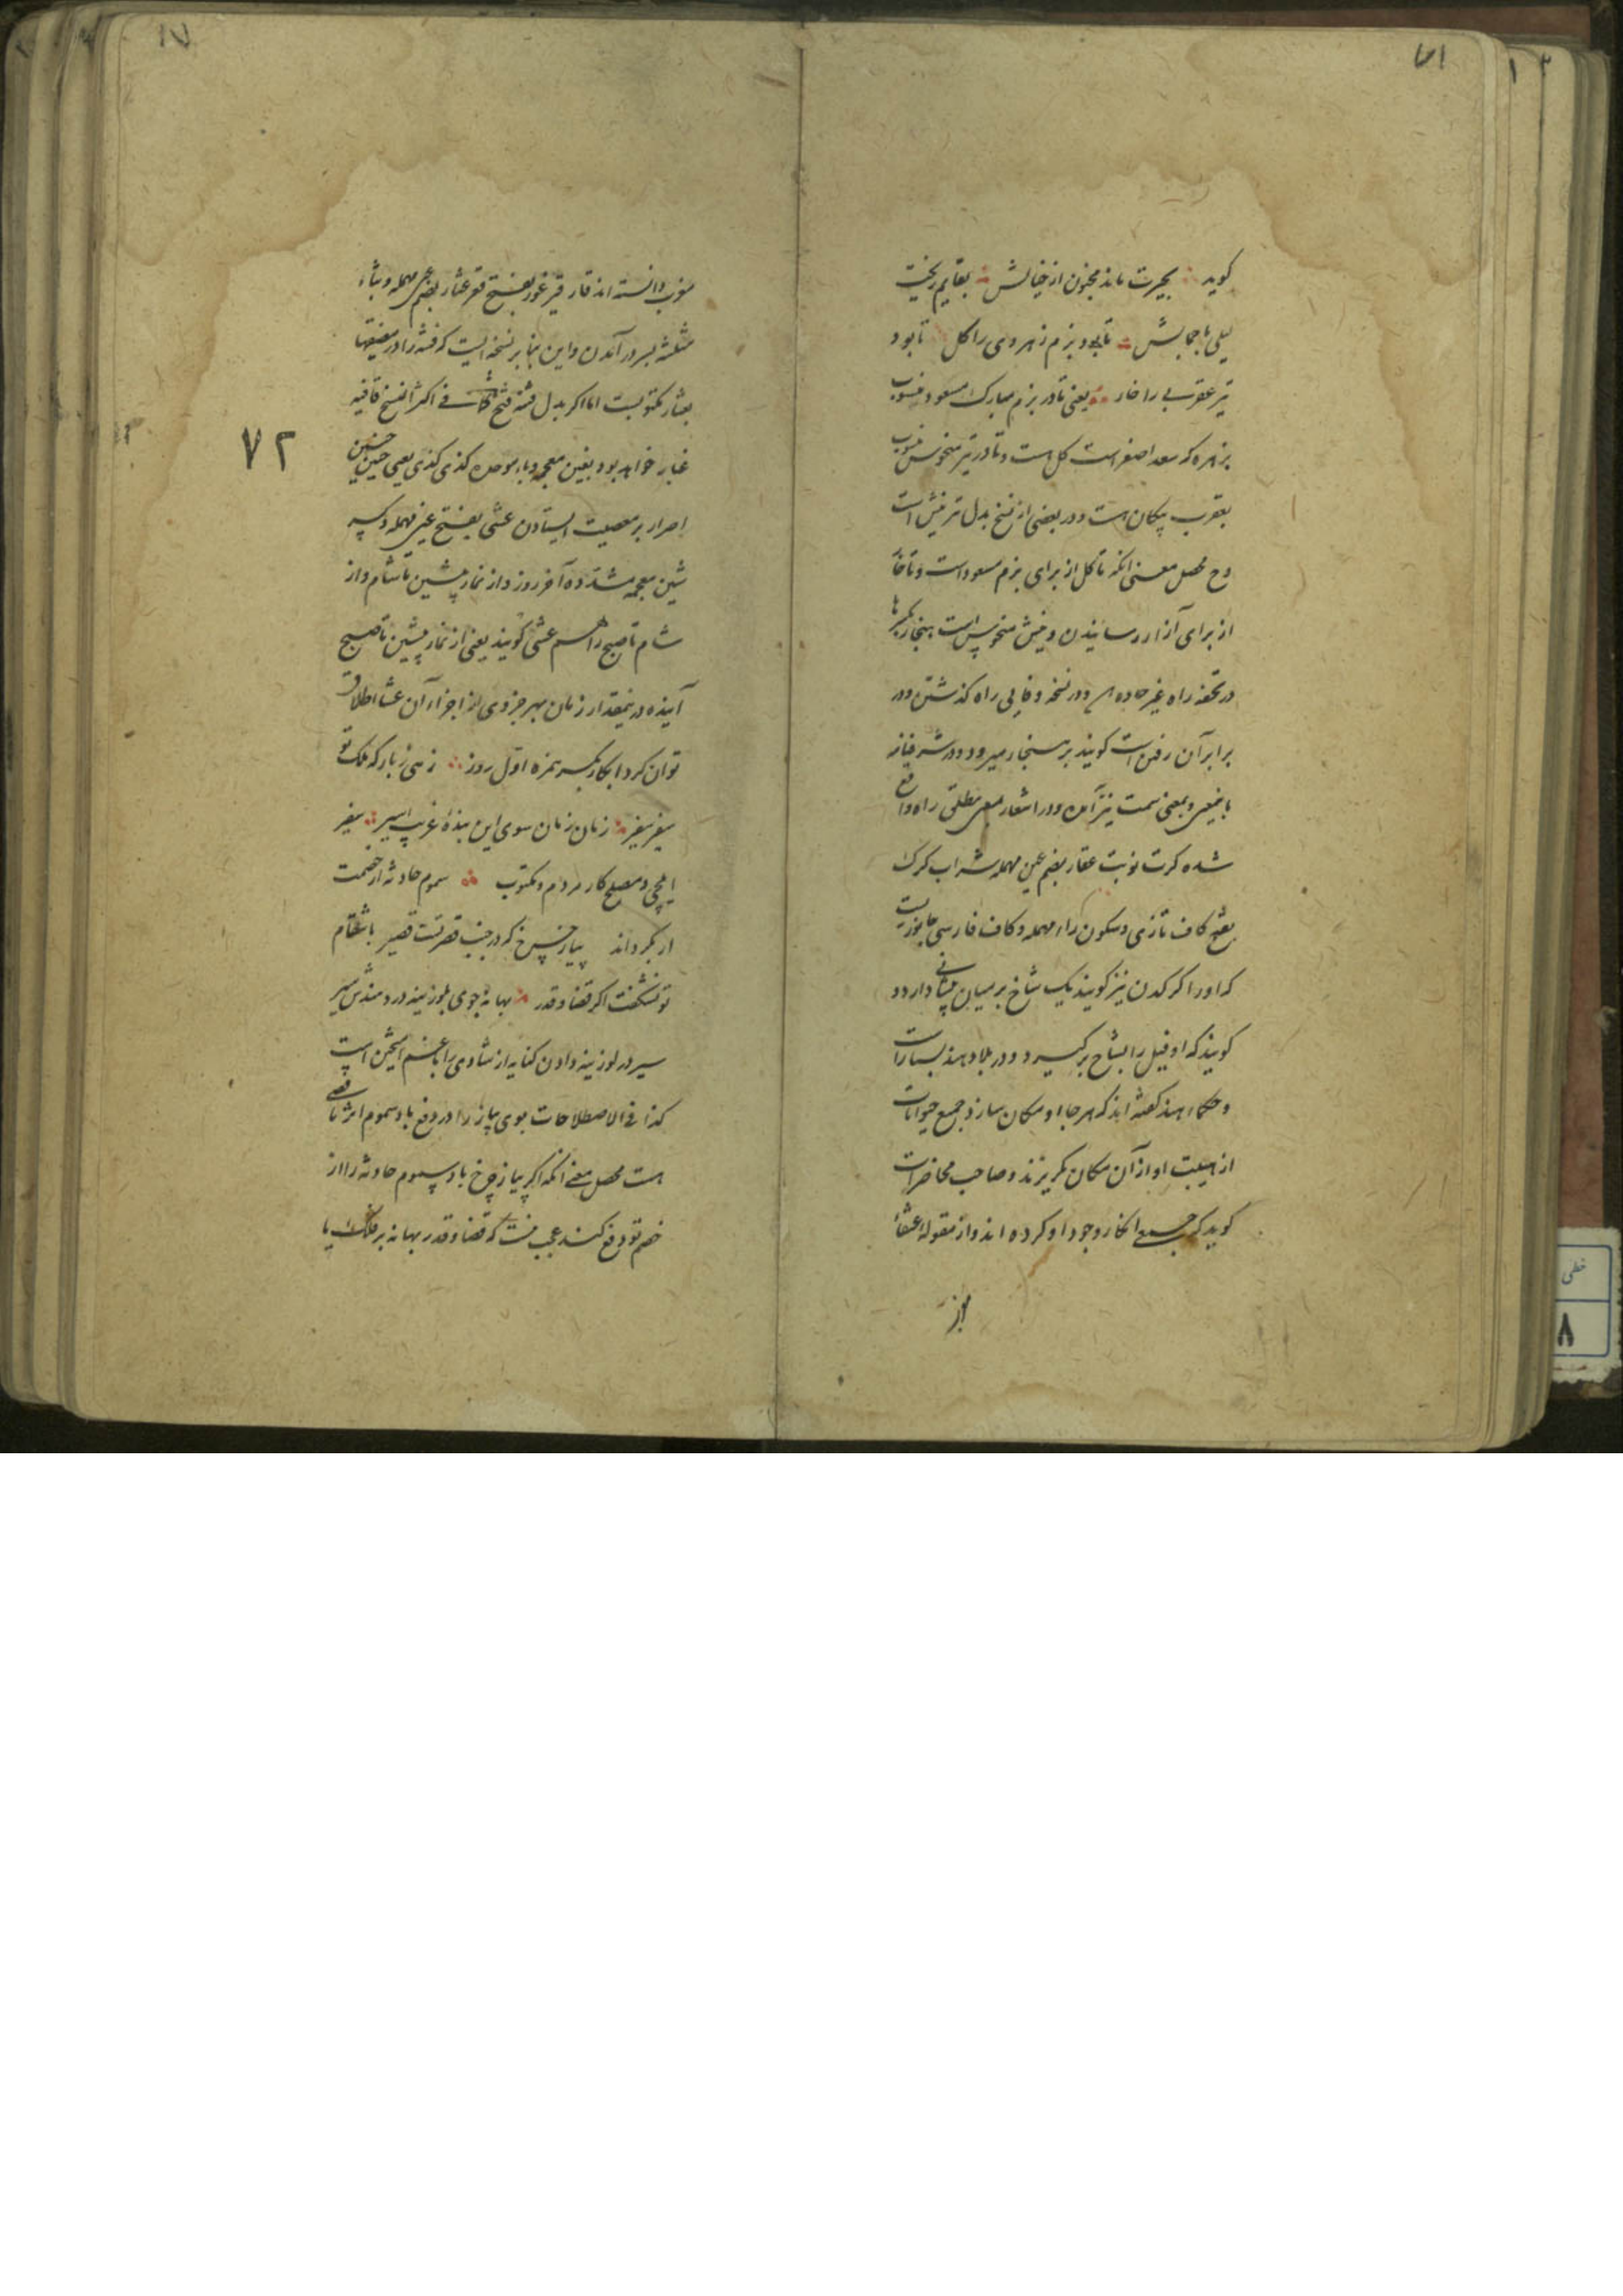 کوید بحیرت ماند مجنون از خیالش بقایم ریخت
لیلی با جمالش تا بود بزم زهروی را کل تا بود
تیر عقربی را خار یعنی تا در بزم مبارک مسعود منسوب
بزهره که سعد اصغر است کل هست و تا در تیر منحوس منسوب
بعقرب پیکان هست و در بعضی از نسخ بدل تیر نیش است
وح محصل معنی انکه تا کل از برای بزم مسعود است و تا خا
از برای آزار رسانیدن و نیش منحوس است بهنجار بکسر ها
در تحفه راه غیر جاده و در نسخه وفایی راه کذشتن و در
برابر آن رفتن است کویند بر هنجار میرود و در شرفنامه
باینمعنی و بمعنی سمت نیز آمده و در اشعار بمعنی مطلق راه واقع
شده کرت نوبت عقار بضم عین مهمله شراب کرک
بفتح کاف تازی و سکون راء مهمله و کاف فارسی جانوریست
که او را کرکدن نیز کویند یک شاخ بر میان پیشانی دارد و
کویند که او فیل را بشاخ بر کیرد و در بلاد هند بسیار است
و حکماء هند کفته اند که هر جا او مکان سازد جمیع حیوانات
از هیبت او از آن مکان بکریزند و صاحب محاضرات
کوید که جمعی انکار وجود او کرده اند و از مقوله عنقا
۷۲
مغرب دانسته اند قار قیر غور بفتح قعر عثار بضم عین مهمله و ثاء
مثلثه بسر در آمدن و این بنا بر نسخه ایست که فتنه را در مضیقها
بعثار مکتوبست اما اکر بدل فتنه فتح باشد فی اکثر النسخ قافیه
غبار خواهد بود بغین معجمه و باء موحده کذی کذی یعنی چنین چنین
اصرار بر معصیت ایستادن عشی بفتح عین مهمله و کسر
شین معجمه مشدده آخر روز و از نماز پیشین تا شام و از
شام تا صبح را هم عشی کویند یعنی از نماز پیشین تا صبح
آینده در نیمقدار زمان بهر جزوی از اجزاء آن عشا اطلاق
توان کرد ابکار بکسر همزه اول روز زهی زبار که ملک تو
سفیر سفیر زمان زمان سوی این بنده غریب اسیر سفیر
ایلچی و مصلح کار مردم و مکتوب سموم حادثه از خصمت
ار بکرداند پیاز چرخ که در جنب قصر تست قصیر باشقام
تو نشکفت اکر قضا و قدر بهانه جوی بلوزینه در دهندش سیر
سیر در لوزینه دادن کنایه از شادی را با غم آمیختن است
کذا فی الاصطلاحات بوی پیاز را در دفع باد سموم اثر تمامی
هست محصل معنی انکه اکر پیاز چرخ باد سموم حادثه را از
خصم تو دفع کند عجب نیست که قضا و قدر بهانه بر فلک یا